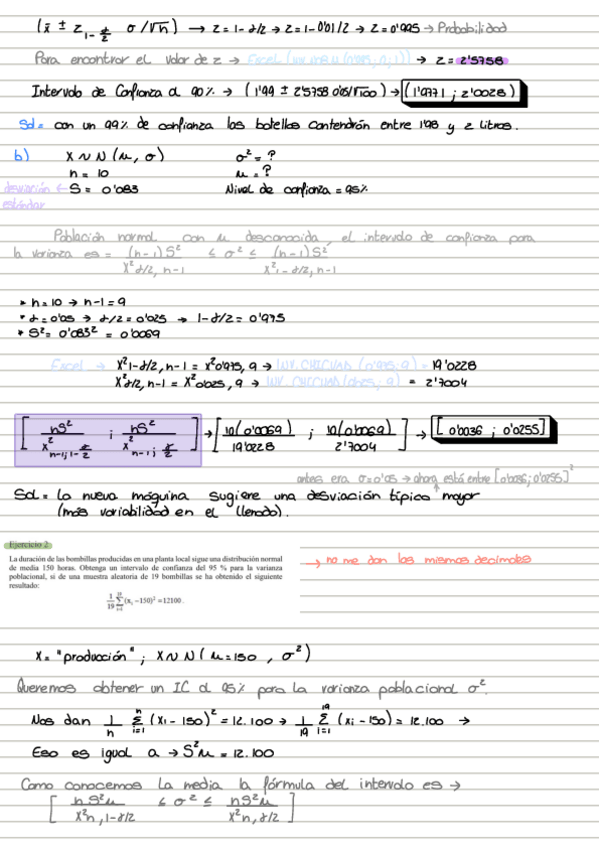 (x̄ ± z_{1-α/2} σ/√n) → z = 1-α/2 → z = 1-0'01/2 → z = 0'995 → Probabilidad
Para encontrar el valor de z → Excel → z = 2'5758
Intervalo de Confianza al 90% → (1'99 ± 2'5758 0'05/√100) → (1'9771 ; 2'0028)
Sol = con un 99% de confianza las botellas contendrán entre 1'98 y 2 litros.
b) X ~ N (μ, σ) σ² = ?
n = 10 μ = ?
desviación estándar ← S = 0'083 Nivel de confianza = 95%
Población normal con μ desconocida, el intervalo de confianza para
la varianza es = (n-1)S² / X²α/2, n-1 ≤ σ² ≤ (n-1)S² / X²1-α/2, n-1
* n = 10 → n-1 = 9
* α = 0'05 → α/2 = 0'025 → 1-α/2 = 0'975
* S² = 0'083² = 0'0069
Excel → X²1-α/2, n-1 = X²0'975, 9 → INV.CHICUAD (0'975; 9) = 19'0228
X²α/2, n-1 = X²0'025, 9 → INV.CHICUAD (0'025; 9) = 2'7004
[ nS² / X²n-1; 1-α/2 ; nS² / X²n-1; α/2 ] → [ 10(0'0069) / 19'0228 ; 10(0'0069) / 2'7004 ] → [0'0036 ; 0'0255]
antes era σ = 0'05 → ahora está entre [0'0036; 0'0255]²
Sol = la nueva máquina sugiere una desviación típica mayor
(más variabilidad en el llenado).
Ejercicio 2
La duración de las bombillas producidas en una planta local sigue una distribución normal
de media 150 horas. Obtenga un intervalo de confianza del 95 % para la varianza
poblacional, si de una muestra aleatoria de 19 bombillas se ha obtenido el siguiente
resultado:
1/19 Σ_{i=1}^{19} (x_i -150)² = 12100.
→ no me dan los mismos decimales
X = "producción" ; X ~ N (μ = 150 , σ²)
Queremos obtener un IC al 95% para la varianza poblacional σ².
Nos dan 1/n Σ_{i=1}^{n} (xi - 150)² = 12.100 → 1/19 Σ_{i=1}^{19} (xi - 150) = 12.100 →
Eso es igual a → S²μ = 12.100
Como conocemos la media la fórmula del intervalo es →
[ nS²μ / X²n, 1-α/2 ≤ σ² ≤ nS²μ / X²n, α/2 ]